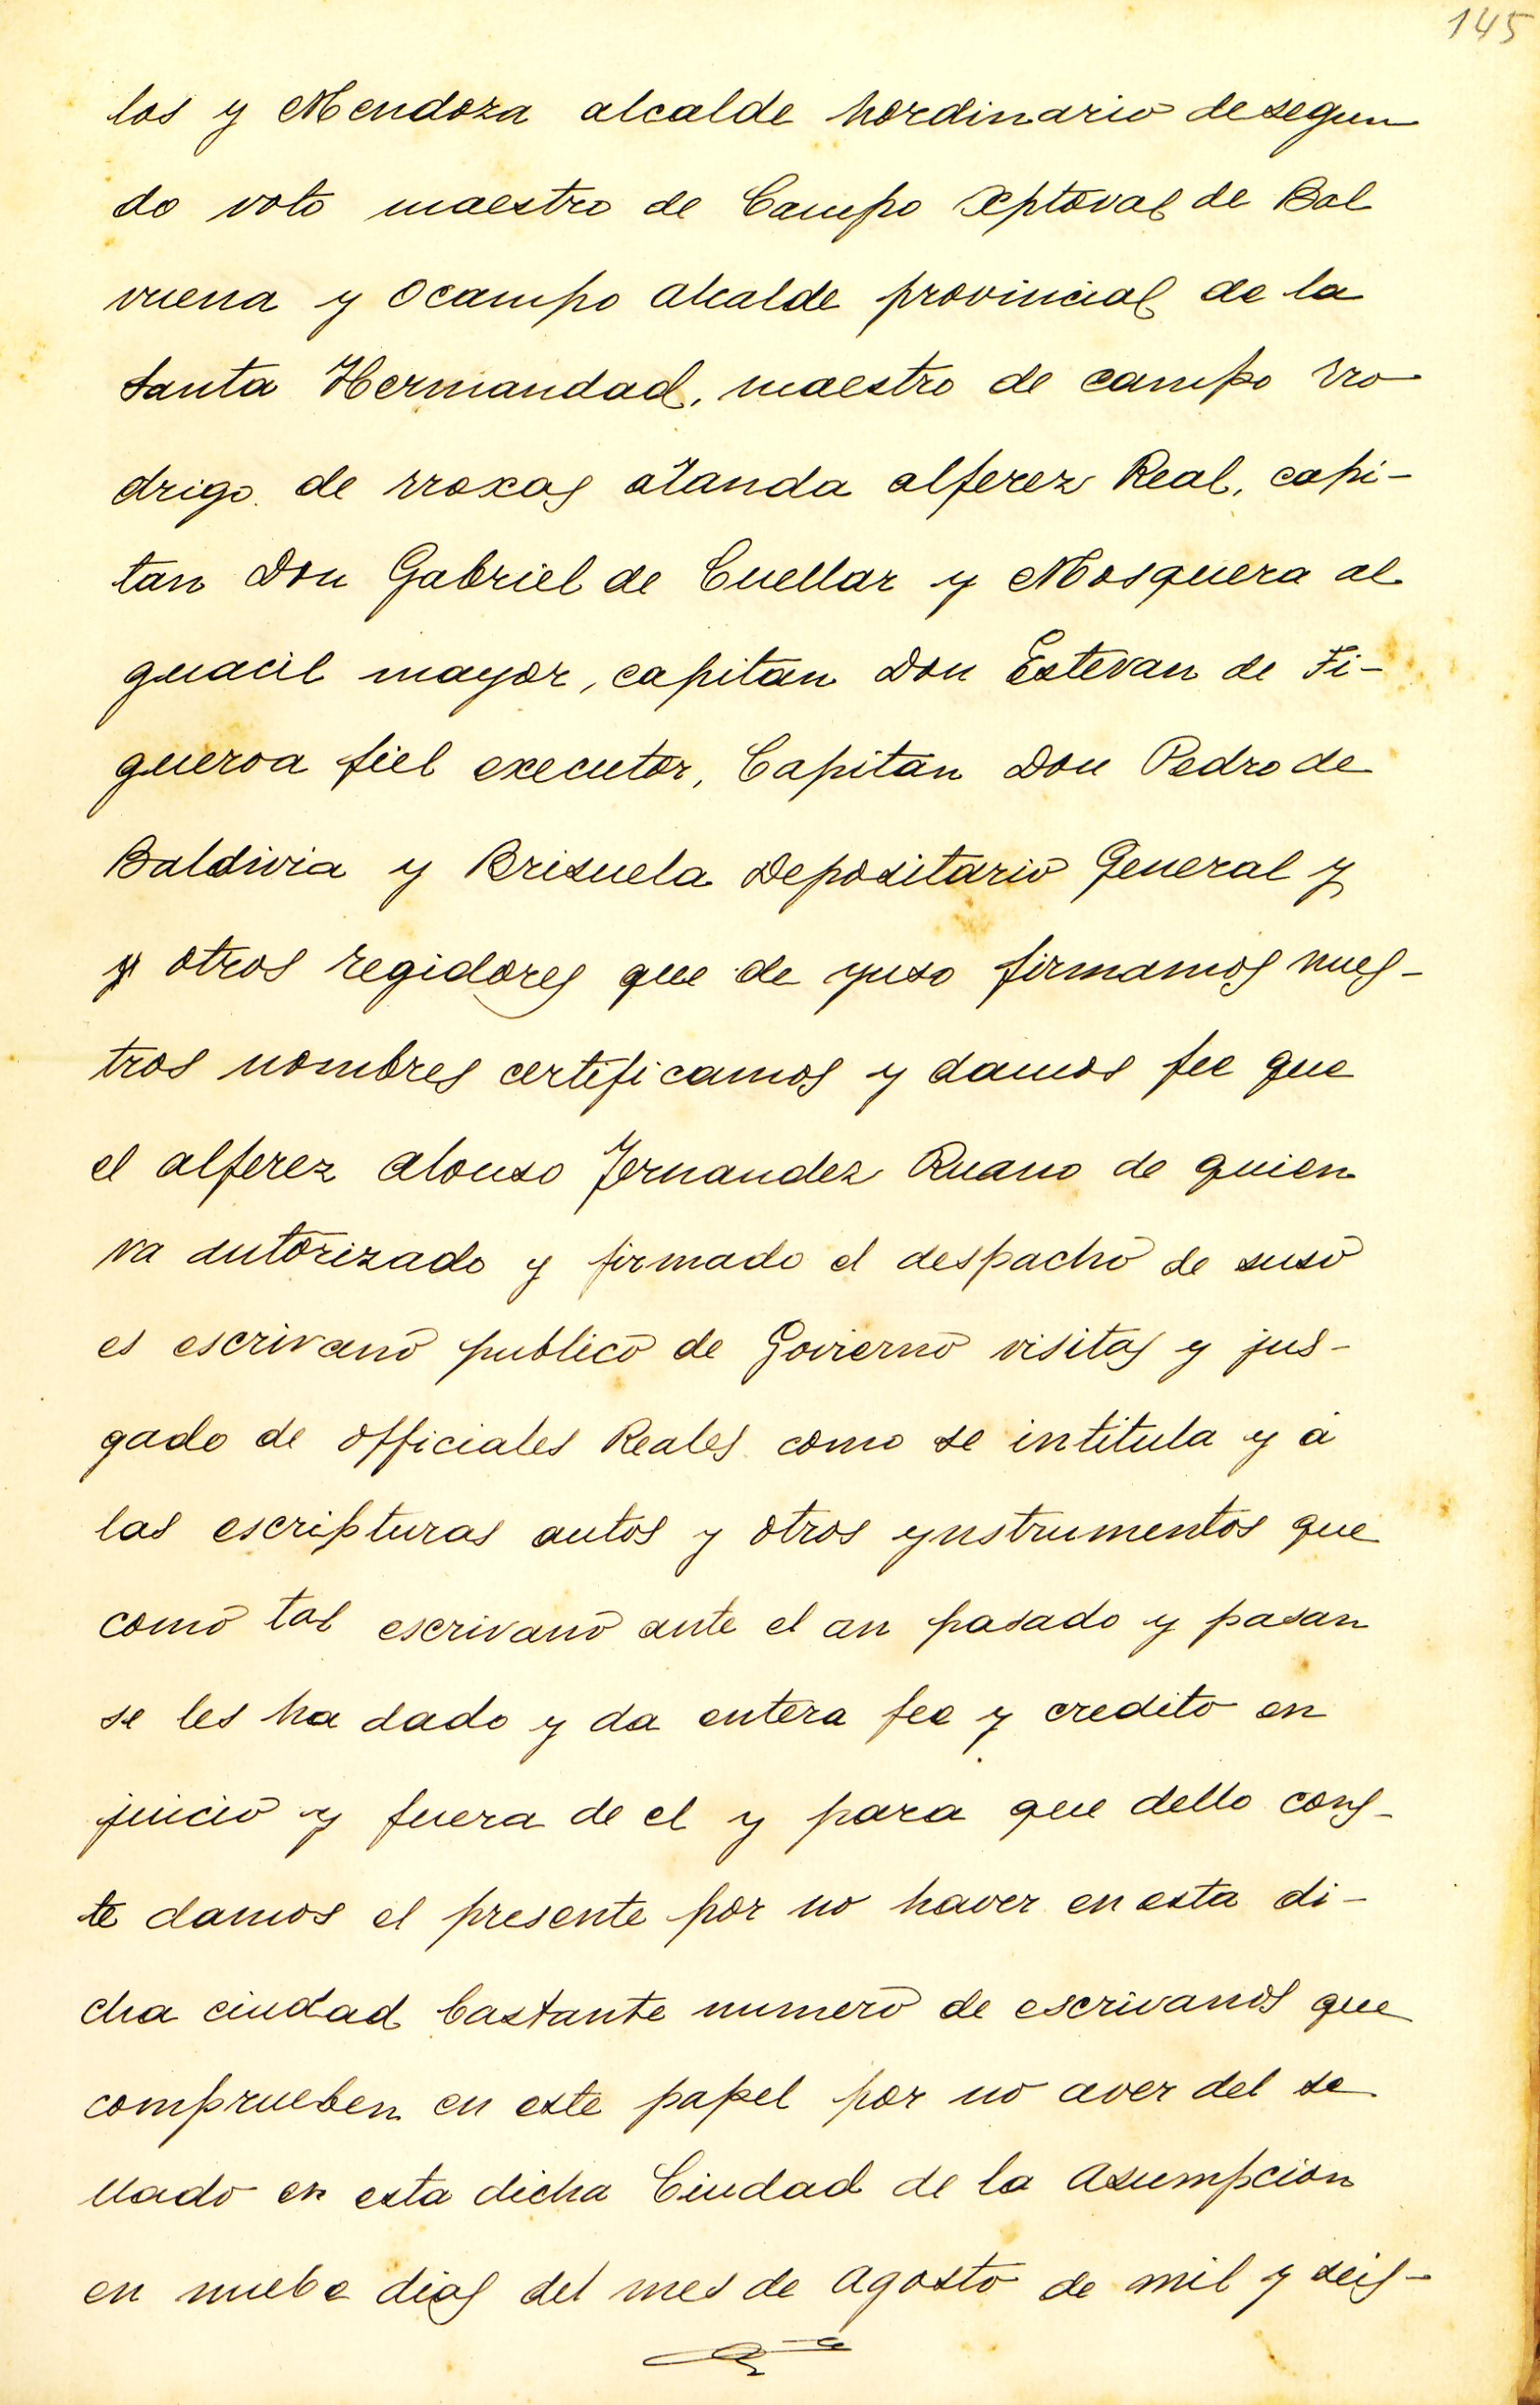 145
los y Mendoza alcalde hordinario de segun
do voto maestro de Campo Xptoval de Bal
vuena y Ocampo alcalde provincial de la
santa Hermandad, maestro de campo rro
drigo de rroxas aranda alferez Real, capi-
tan Don Gabriel de Cuellar y Mosquera al
guacil mayor, capitan Don Estevan de Fi-
gueroa fiel executor, Capitan Don Pedro de
Baldivia y Brisuela Depositario General y
y otros regidores que de yuso firmamos nues-
tros nombres certificamos y damos fee que
el alferez alonso Fernandez Ruano de quien
va autorizado y firmado el despacho de suso
es escrivano publico de Govierno visitas y jus-
gado de officiales Reales como se intitula y á
las escripturas autos y otros ynstrumentos que
como tal escrivano ante el an pasado y pasan
se les ha dado y da entera fee y credito en
juicio y fuera de el y para que dello cons-
te damos el presente por no haver en esta di-
cha ciudad bastante numero de escrivanos que
comprueben en este papel por no aver del se
llado en esta dicha Ciudad de la Asumpcion
en nuebe dias del mes de Agosto de mil y seis-